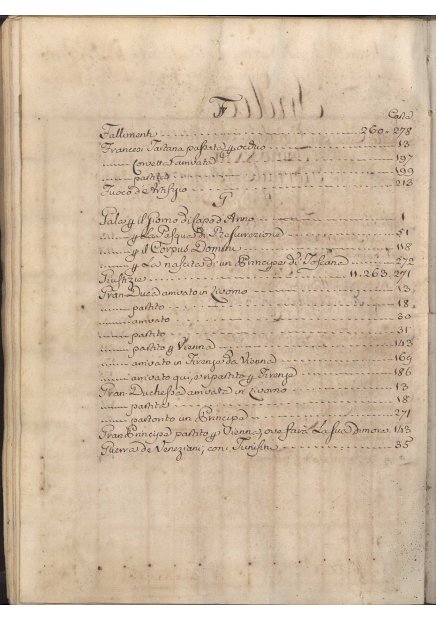 F
Carte
Fallimenti 260. 278
Francesi Tartana passata q 13
Corvetta arrivata 197
partita 199
Fuoco di Artifizio 213
G
Gala p il giorno di Capo d'Anno 1
p La Pasqua di Resurrezione 51
p il Corpus Domini 118
p La nascita di un Principe di Toscana 272
Giustizie 11. 263. 271
Gran Duca arrivato in Livorno 13
partito 18
arrivato 30
partito 31
partito p Vienna 143
arrivato in Firenze da Vienna 169
arrivato qui, e ripartito p Firenze 186
Gran Duchessa arrivata in Livorno 13
partita 18
partorito un Principe 271
Gran Principe partito p Vienna, ove farà La sua dimora 143
Guerra de Veneziani, con i Tunisini 35